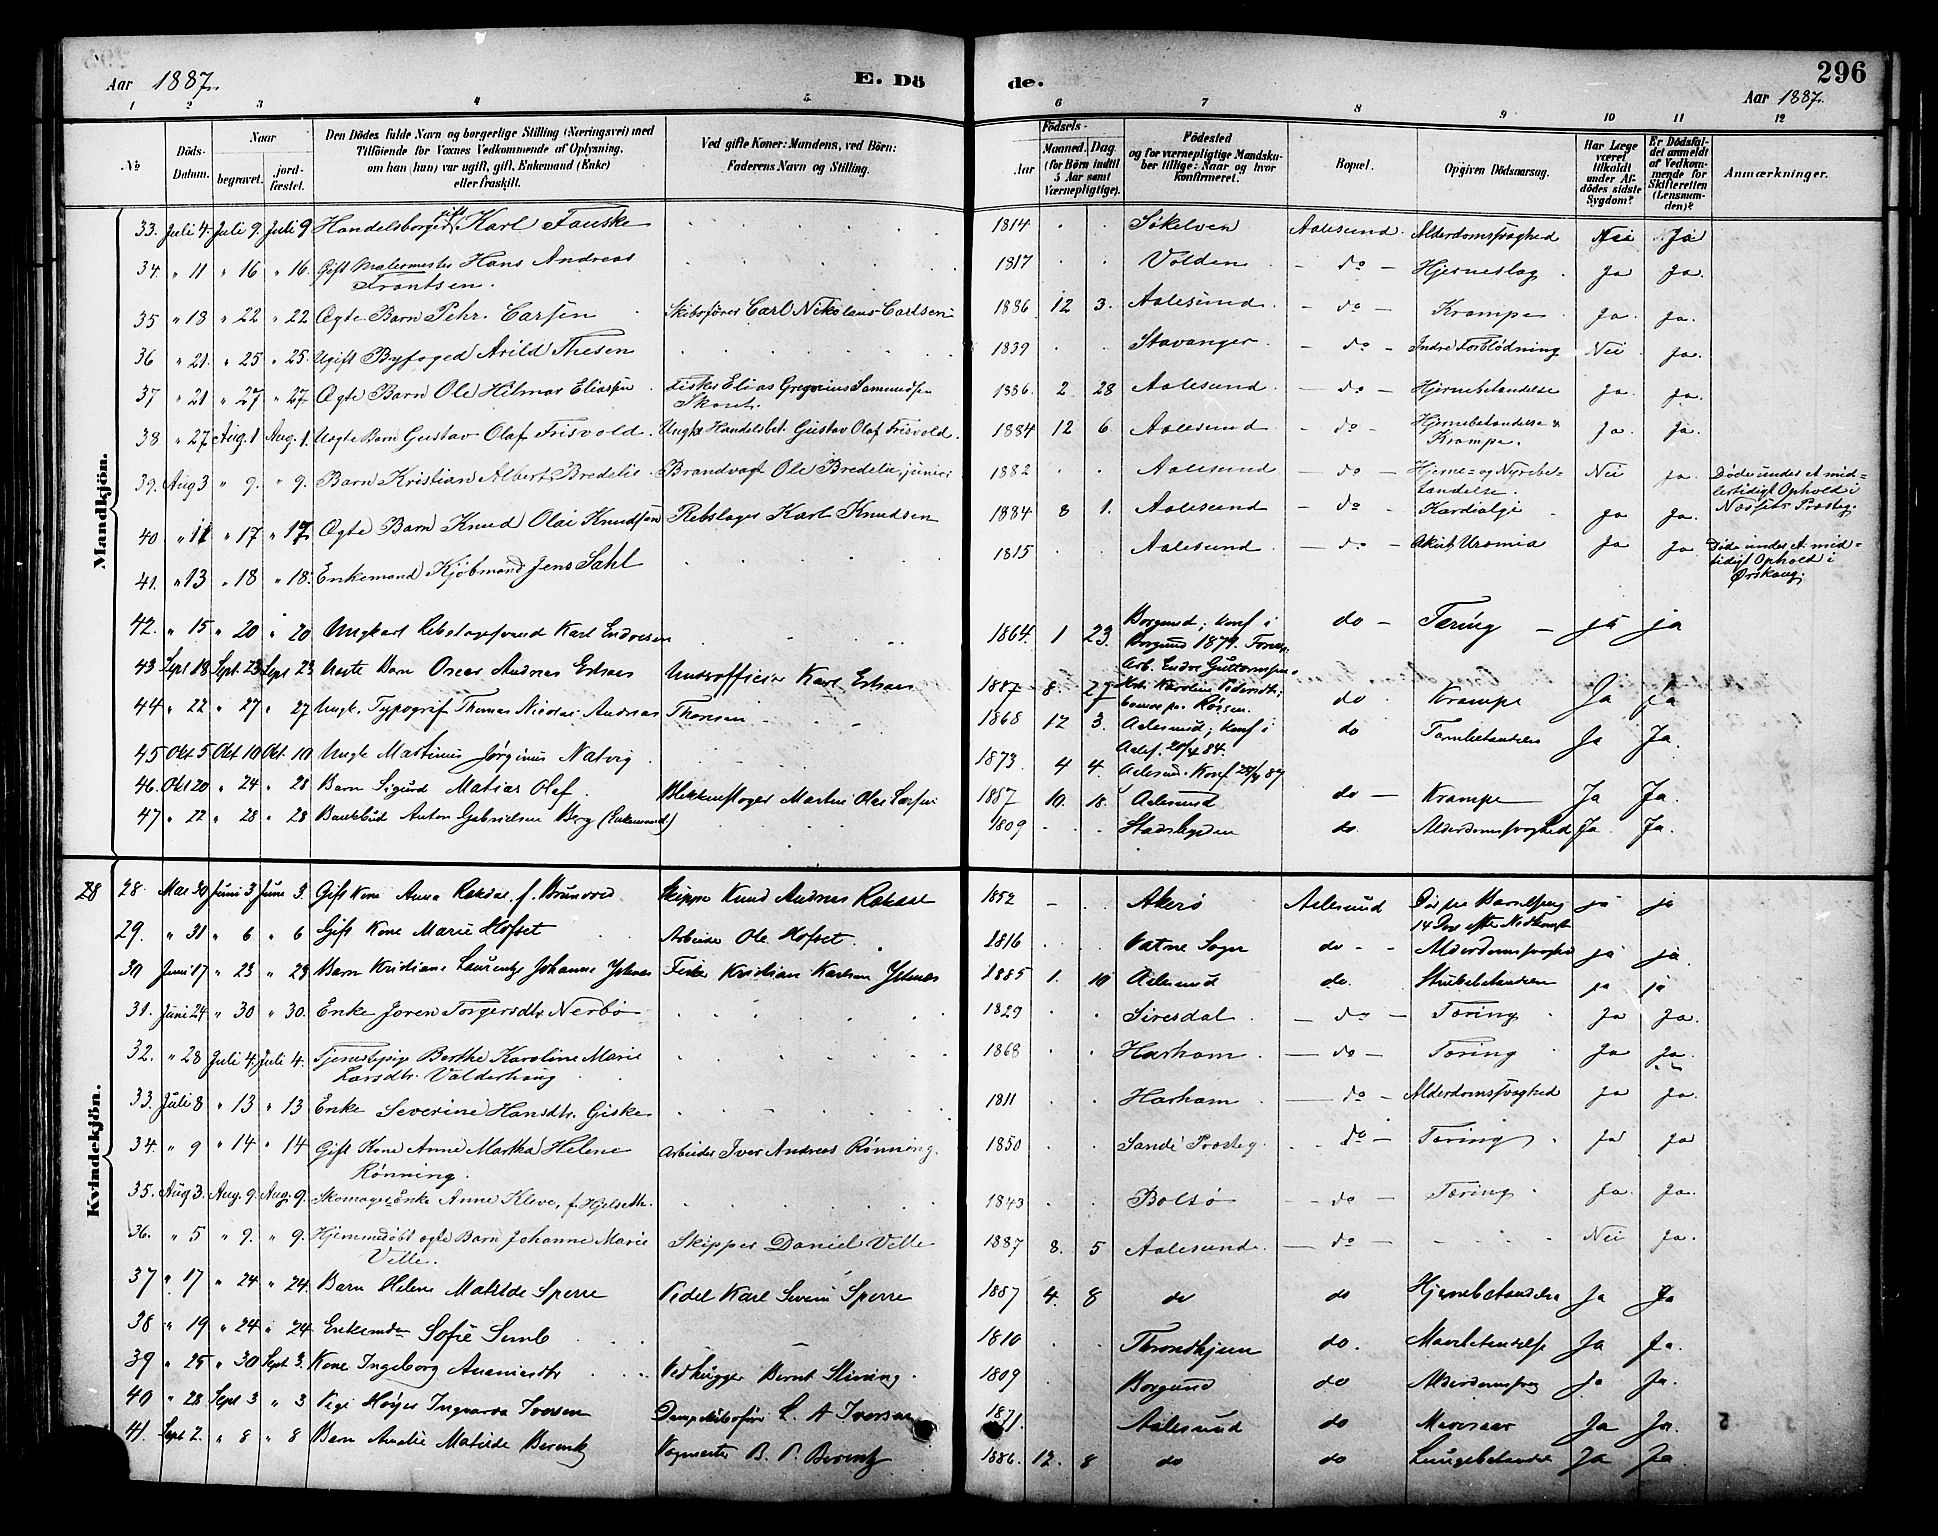 296
Aar 1887.
E. Dö
de.
Aar 1887.
1 2 3 4 5 6 7 8 9 10 11 12
No
Döds-Datum.
Naar
begravet.
jordfæstet.
Den Dödes fulde Navn og borgerlige Stilling (Næringsvei) med
Tilföiende for Voxnes Vedkommende af Oplysning,
om han (hun) var ugift, gift, Enkemand (Enke)
eller fraskilt.
Ved gifte Koner: Mandens, ved Börn:
Faderens Navn og Stilling.
Födsels-
Aar
Maaned. Dag.
(for Börn indtil
5 Aar samt
Værnepligtige).
Födested
og for værnepligtige Mandsku-
ber tillige: Naar og hvor
konfirmeret.
Bopæl.
Opgiven Dödsaarsag.
Har Læge
været
tilkaldt
under Af-
dödes sidste
Sygdom?
Er Dödsfal-
det anmeldt
af Vedkom-
mende for
Skifteretten
(Lensman-
den)?
Anmærkninger.
Mandkjön.
33. Juli 4. Juli 9. Juli 9 Handelsborger gift Karl Fauske 1814 Søkelven Aalesund. Alderdomssvaghed Nei Ja
34. " 11 " 16 " 16. Gift Malermester Hans Andreas 1817 Volden - do - Hjerneslag. Ja Ja.
Frantsen.
35 " 18 " 22 " 22 Ægte Barn Pehr Carlsen Skibsfører Carl Nikolaus Carlsen 1886 12 3. Aalesund - do - Krampe Ja. ja.
36 " 21. " 25 " 25. Ugift Byfoged Arild Thesen 1839 Stavanger - do - Indre Forblødning Nei ja.
37 " 21 " 27 " 27. Ægte Barn Ole Hilmar Eliassen Fisker Elias Gregorius Samundsen 1886. 2 28 Aalesund - do - Hjernebetændelse Ja. ja.
38 " 27 Aug. 1 Aug. 1. Uægte Barn Gustav Olaf Frisvold. Ungk. Handelsbet. Gustav Olaf Frisvold. 1884 12 6 Aalesund - do - Hjernebetændelse &
Krampe. Ja. Ja.
39. Aug 3 " 9. " 9. Barn Kristian Albert Bredelie Brandvagt Ole Bredelie junior 1882 Aalesund - do - Hjerne- og Nyrebe-
tændelse. Nei ja. Døde under et mid-
lertidigt Ophold i
Næssets Præsteg.
40 " 11 " 17 " 17 Ægte Barn Knud Olai Knudsen Rebslager Karl Knudsen 1884 8 1. Aalesund - do - Kardialgi ja Ja.
41. " 13 " 18 " 18. Enkemand Kjøbmand Jens Dahl 1815 Aalesund - do - Akut Uræmia Ja Ja Døde under et mid-
tidigt Ophold i
Ørskoug.
42. " 15 " 20 " 20 Ungkarl Rebslagersvend Karl Endresen 1864. 1 23. Borgund; konf i
Borgund 1879. do - Tæring ja ja
Arb. Endre Guttormsen
43 Sept 18 Sept. 23 Sept 23 Uægte Barn Oscar Andreas Underofficier Karl 1887 8. 27 do Krampe Ja Ja
44 " 22 " 27 " 27 Ungk. Typograf Thomas Nicolai Andreas Thonsen 1868 12 3. Aalesund; konf i do Ja Ja.
45 Okt 5 Okt 10 Okt 10 Ungk Martinus Jørginus Natvig 1873 4 4. Aalesund. Konf
46. Okt 20 " 24 " 28 Barn Sigurd Matias Olaf. Blikkenslager Martin Olai Larsen 1887 10. 18. Aalesund do - Krampe Ja Ja.
47 " 22 " 28 " 28 Bankbud Anton Gabrielsen Berg (Enkemand) 1809 Stadsbygden do. Alderdomssvaghed Ja. Ja.
Kvindekjön.
28 28. Mai 30 Juni 3 Juni 3. Gift Kone Anna Rakdal f. Brunvoll Skipper Knud Andreas Rakdal 1852 - Akerø Aalesund Død paa Barselseng
14 Dage efter Nedkomst ja ja
29. " 31 " 6 " 6 Gift Kone Marie Hofset Arbeider Ole Hofset. 1816 Vatne Sogn do - Alderdomssvaghed ja ja
30 Juni 17 " 23 " 23 Barn Kristiane Laurentze Johanne Fisker Kristian Karlsen 1885 1. 10 Aalesund do. Strubebetændelse ja ja
31. Juni 24 " 30 " 30. Enke Joren Torgersdtr. Nerbø 1829 Siresdal - do - Tæring Ja Ja.
32. " 28 Juli 4. Juli 4. Tjenestepige Berthe Karoline Marie 1868 Harham - do - Tæring Ja Ja.
Larsdtr. Valderhaug
33. Juli 8 " 13 " 13 Enke Severine Hansdtr. Giske 1811 Harham - do - Alderdomssvaghed Ja Ja.
34. " 9 " 14 " 14 Gift Kone Anne Martha Helene Arbeider Iver Andreas Rønning. 1850 Sande Præsteg. - do - Tæring Ja Ja
Rønning.
35. Aug 3. Aug. 9. Aug. 9. Skomager Enke Anne Kleve, f. Hjelseth. 1843 Bolsø - do - Tæring Ja. Ja.
36. " 5 " 9. " 9. Hjemmedøbt ægte Barn Johanne Marie Skipper Daniel Velle 1887 8. 5 Aalesund. - do - Nei Ja.
Velle.
37 " 17 " 24 " 24. Barn Helene Matilde Sperre Pedel Karl Severin Sperre 1887 4. 8 do do Hjernebetændelse Ja Ja
38 " 19 " 24 " 24 Sofie Semb 1810 Throndhjem do. Mavebetændelse Ja Ja.
39 " 25 " 30 Sept. 3. Kone Ingeborg Ananiasdtr Vedhugger Bernt Slining. 1809 Borgund do Alderdomssvag Ja Ja.
40 " 28 Sept 3 " 3 Pige Ingvarda Iversen Dampskibsfører L. A Iversen 1871 Aalesund do Ja Ja.
41. Sept 2. " 8 " 8 Barn Amalie Matilde Berentz Vagmester B. P. Berentz 1886. 12. 8 do do Lungebetændelse Ja Ja.